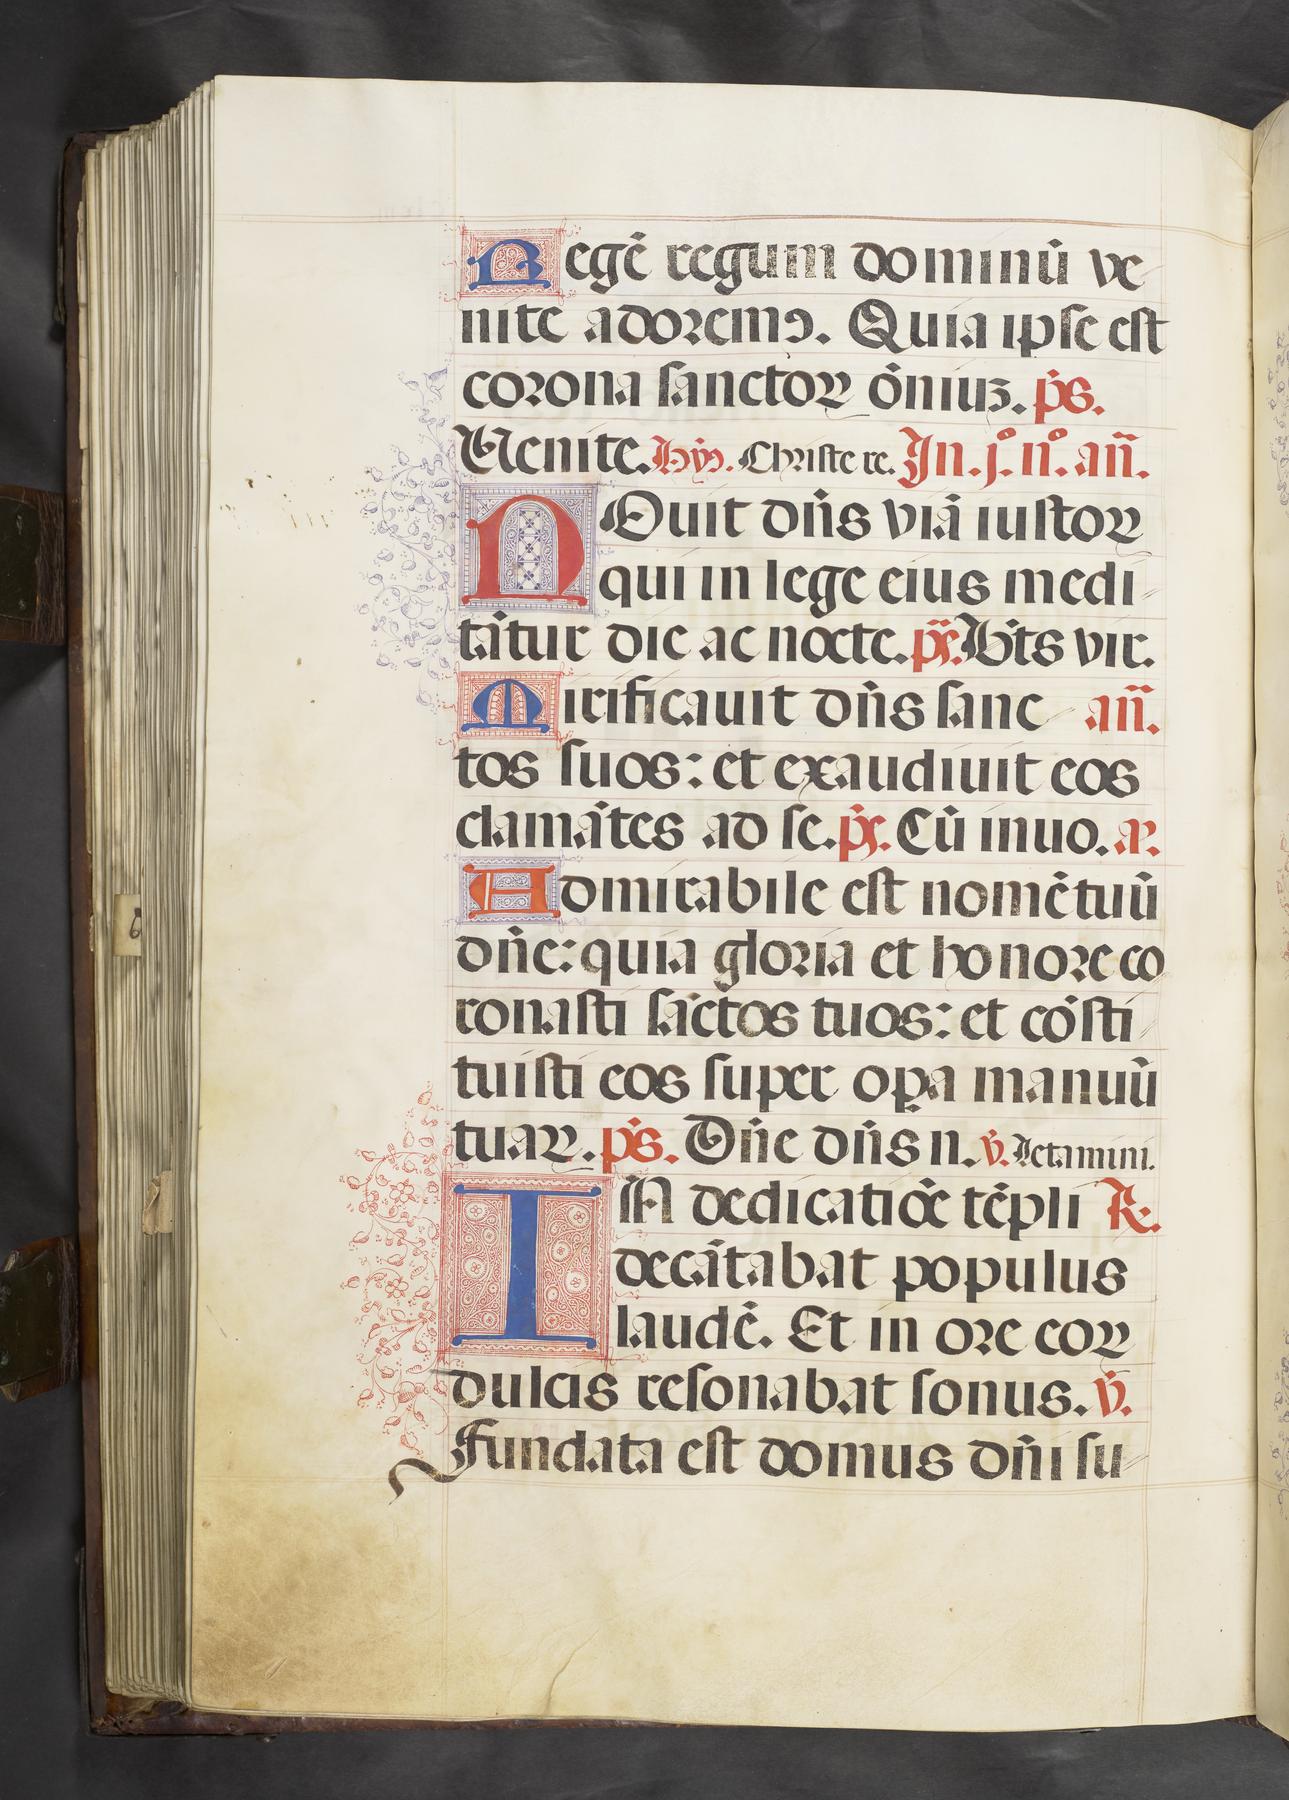 Regē regum dominū ve
nite adoremꝯ. Quia ipse est
corona sanctoꝝ ōniuʒ. p̄s.
Uenite. hyꝯ. Christe re. In. j.º n.º an̄.
NOuit dn̄s viā iustoꝝ
qui in lege eius medi
tātur die ac nocte. p̄s. Bt̄s vir.
Mirificauit dn̄s sanc an̄.
tos suos: et exaudiuit eos
clamātes ad se. p̄s. Cū inuo. a.
Admirabile est nomē tuū
dn̄e: quia gloria et honore co
ronasti sāctos tuos: et cōsti
tuisti eos super oꝑa manuū
tuaꝝ. p̄s. Dn̄e dn̄s n. v̄. Letamini.
IN dedicatiōe tēpli R.
decātabat populus
laudē. Et in ore eoꝝ
dulcis resonabat sonus. v̄.
Fundata est domus dn̄i su
6